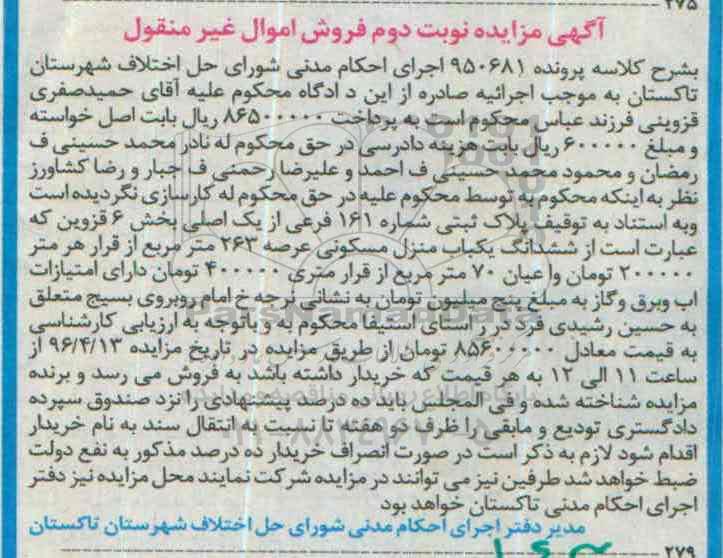 ۲۷۵
آگهی مزایده نوبت دوم فروش اموال غیر منقول
بشرح کلاسه پرونده ۹۵۰۶۸۱ اجرای احکام مدنی شورای حل اختلاف شهرستان
تاکستان به موجب اجرائیه صادره از این د ادگاه محکوم علیه آقای حمیدصفری
قزوینی فرزند عباس محکوم است به پرداخت ۸۶۵۰۰۰۰۰ ریال بابت اصل خواسته
و مبلغ ۶۰۰۰۰۰ ریال بابت هزینه دادرسی در حق محکوم له نادر محمد حسینی ف
رمضان و محمود محمد حسینی ف احمد و علیرضا رحمنی ف جبار و رضا کشاورز
نظر به اینکه محکوم به توسط محکوم علیه در حق محکوم له کارسازی نگردیده است
وبه استناد به توقیف پلاک ثبتی شماره ۱۶۱ فرعی از یک اصلی بخش ۶ قزوین که
عبارت است از ششدانگ یکباب منزل مسکونی عرصه ۲۶۳ متر مربع از قرار هر متر
۲۰۰۰۰۰ تومان واعیان ۷۰ متر مربع از قرار متری ۴۰۰۰۰۰ تومان دارای امتیازات
اب وبرق وگاز به مبلغ پنج میلیون تومان به نشانی نرجه خ امام روبروی بسیج متعلق
به حسین رشیدی فرد در ر استای استیفا محکوم به و باتوجه به ارزیابی کارشناسی
به قیمت معادل ۸۵۶۰۰۰۰۰ تومان از طریق مزایده در تاریخ مزایده ۹۶/۴/۱۳ از
ساعت ۱۱ الی ۱۲ به هر قیمت که خریدار داشته باشد به فروش می رسد و برنده
مزایده شناخته شده و فی المجلس باید ده درصد پیشنهادی را نزد صندوق سپرده
دادگستری تودیع و مابقی را ظرف دو هفته تا نسبت به انتقال سند به نام خریدار
اقدام شود لازم به ذکر است در صورت انصراف خریدار ده درصد مذکور به نفع دولت
ضبط خواهد شد طرفین نیز می توانند در مزایده شرکت نمایند محل مزایده نیز دفتر
اجرای احکام مدنی تاکستان خواهد بود
مدیر دفتر اجرای احکام مدنی شورای حل اختلاف شهرستان تاکستان
۲۷۹
ParsNamadData